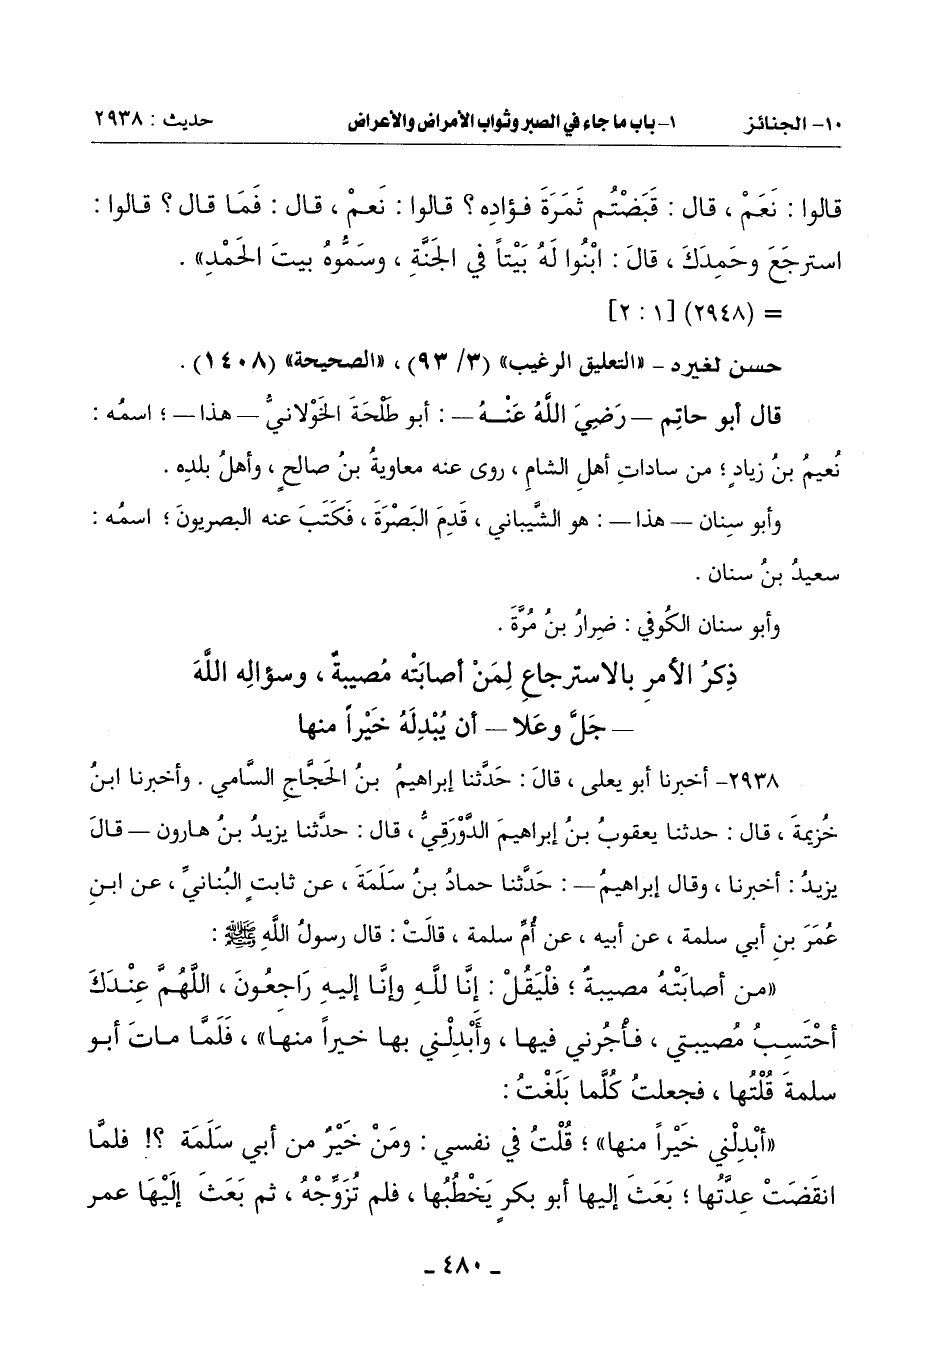 ١٠- الجنائز ١- باب ما جاء في الصبر وثواب الأمراض والأعراض حديث : ٢٩٣٨
قالوا : نَعَمْ ، قال : قَبَضْتُم ثَمَرَةَ فؤادِه ؟ قالوا : نَعمْ ، قال : فَمَا قال ؟ قالوا :
استرجَعَ وحَمِدَكَ ، قالَ : ابْنُوا لَهُ بَيْتاً في الجَنَّةِ ، وسَمُّوهُ بيتَ الحَمْدِ» .
= (٢٩٤٨) [١ : ٢]
حسن لغيره – «التعليق الرغيب» (٣/ ٩٣) ، «الصحيحة» (١٤٠٨) .
قال أبو حاتِم –رَضِيَ اللَّهُ عَنْهُ– : أبو طَلْحَةَ الخَوْلانيُّ –هذا– ؛ اسمُه :
نُعيمُ بنُ زيادٍ ؛ من ساداتِ أهلِ الشامِ ، روى عنه معاويةُ بنُ صالحٍ ، وأهلُ بلدِه .
وأبو سِنان –هذا– : هو الشَّيباني ، قَدِمَ البَصْرَةَ ، فكَتَبَ عنه البصريون ؛ اسمُه :
سعيدُ بنُ سنان .
وأبو سنان الكُوفي : ضِرارُ بنُ مُرَّةَ .
ذِكرُ الأمرِ بالاسترجاعِ لِمَنْ أصابَتْه مُصيبةٌ ، وسؤالِه اللَّهَ
–جَلَّ وعَلا– أن يُبْدِلَهُ خَيْراً منها
٢٩٣٨- أخبرنا أبو يعلى ، قالَ : حَدَّثنا إبراهيمُ بنُ الحَجَّاجِ السَّامي . وأخبرنا ابنُ
خُزيمةَ ، قال : حدثنا يعقوبُ بنُ إبراهيمَ الدَّوْرَقيُّ ، قال : حدَّثنا يزيدُ بنُ هارون –قالَ
يزيدُ : أخبرنا ، وقال إبراهيمُ– : حَدَّثنا حمادُ بنُ سَلَمَةَ ، عن ثابتٍ البُنانيِّ ، عن ابنِ
عُمَرَ بنِ أبي سلمة ، عن أبيه ، عن أُمِّ سلمة ، قالَتْ : قال رسولُ اللَّهِ ﷺ :
«من أصابَتْهُ مصيبةٌ ؛ فلْيَقُلْ : إنَّا للَّهِ وإنَّا إليهِ رَاجعُونَ ، اللَّهُمَّ عِنْدَكَ
أحْتَسِبُ مُصيبتي ، فأْجُرني فيها ، وأَبْدِلْني بها خيراً منها» ، فَلَمَّا ماتَ أبو
سلمةَ قُلْتُها ، فجعلتُ كُلَّما بَلَغْتُ :
«أبْدِلْني خَيْراً منها» ؛ قُلْتُ في نفسي : ومَنْ خَيْرٌ من أبي سَلَمَةَ ؟! فلمَّا
انقَضَتْ عِدَّتُها ؛ بَعَثَ إليها أبو بكرٍ يَخْطُبُها ، فلم تُزَوِّجْهُ ، ثم بَعَثَ إلَيْهَا عمر
- ٤٨٠ -